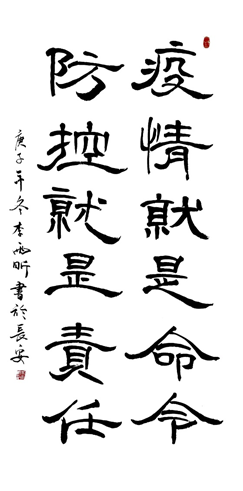 疫情就是命令
防控就是責任
庚子年冬李雨昕書於長安